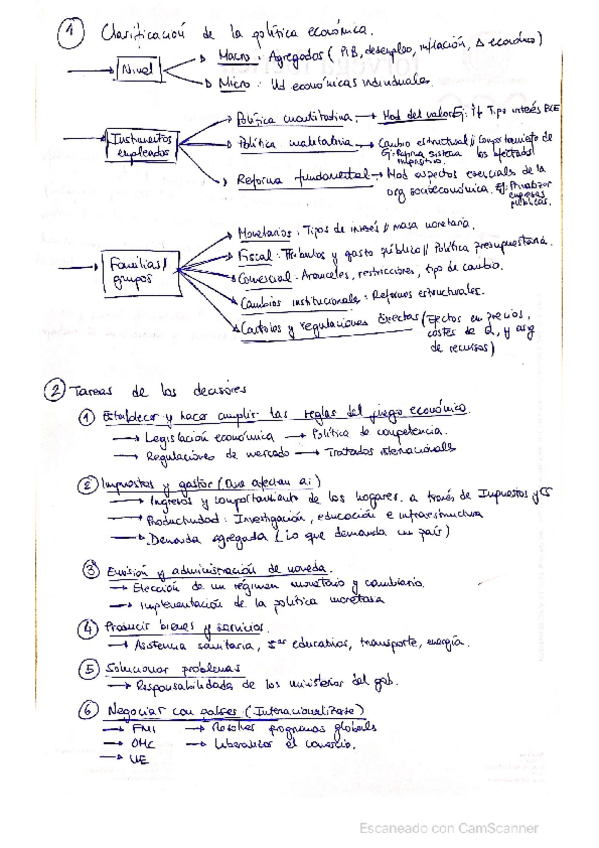 1 Clasificación de la política económica.
→ Nivel
→ Macro: Agregados (PIB, desempleo, inflación, Δ económico)
→ Micro: Ud económicas individuales.
→ Instrumentos empleados
→ Política cuantitativa → Mod del valor Ej: Tipo interés BCE
→ Política cualitativa → Cambio estructural // Comportamiento de los afectados
Ej: Reforma sistema impositivo.
→ Reforma fundamental → Mod aspectos esenciales de la
org socioeconómica. Ej: Privatizar
empresas
públicas.
→ Familias/
grupos
→ Monetarios: Tipos de interés // masa monetaria.
→ Fiscal: Tributos y gasto público // Política presupuestaria.
→ Comercial: Aranceles, restricciones, tipo de cambio.
→ Cambios institucionales: Reformas estructurales.
→ Controles y regulaciones directas (Efectos en precios,
costes de Q, y asig
de recursos)
2 Tareas de los decisores
1 Establecer y hacer cumplir las reglas del juego económico.
→ Legislación económica → Política de competencia.
→ Regulaciones de mercado → Tratados internacionales
2 Impuestos y gastos (Que afectan a:)
→ Ingresos y comportamiento de los hogares. a través de Impuestos y G
→ Productividad: Investigación, educación e infraestructura
→ Demanda agregada (Lo que demanda un país)
3 Emisión y administración de moneda.
→ Elección de un régimen monetario y cambiario.
→ Implementación de la política monetaria
4 Producir bienes y servicios.
→ Asistencia sanitaria, educativos, transporte, energía.
5 Solucionar problemas
→ Responsabilidades de los ministerios del gob.
6 Negociar con países (Internacionalizarse)
→ FMI → Resolver programas globales
→ OMC → Liberalizar el comercio.
→ UE
Escaneado con CamScanner